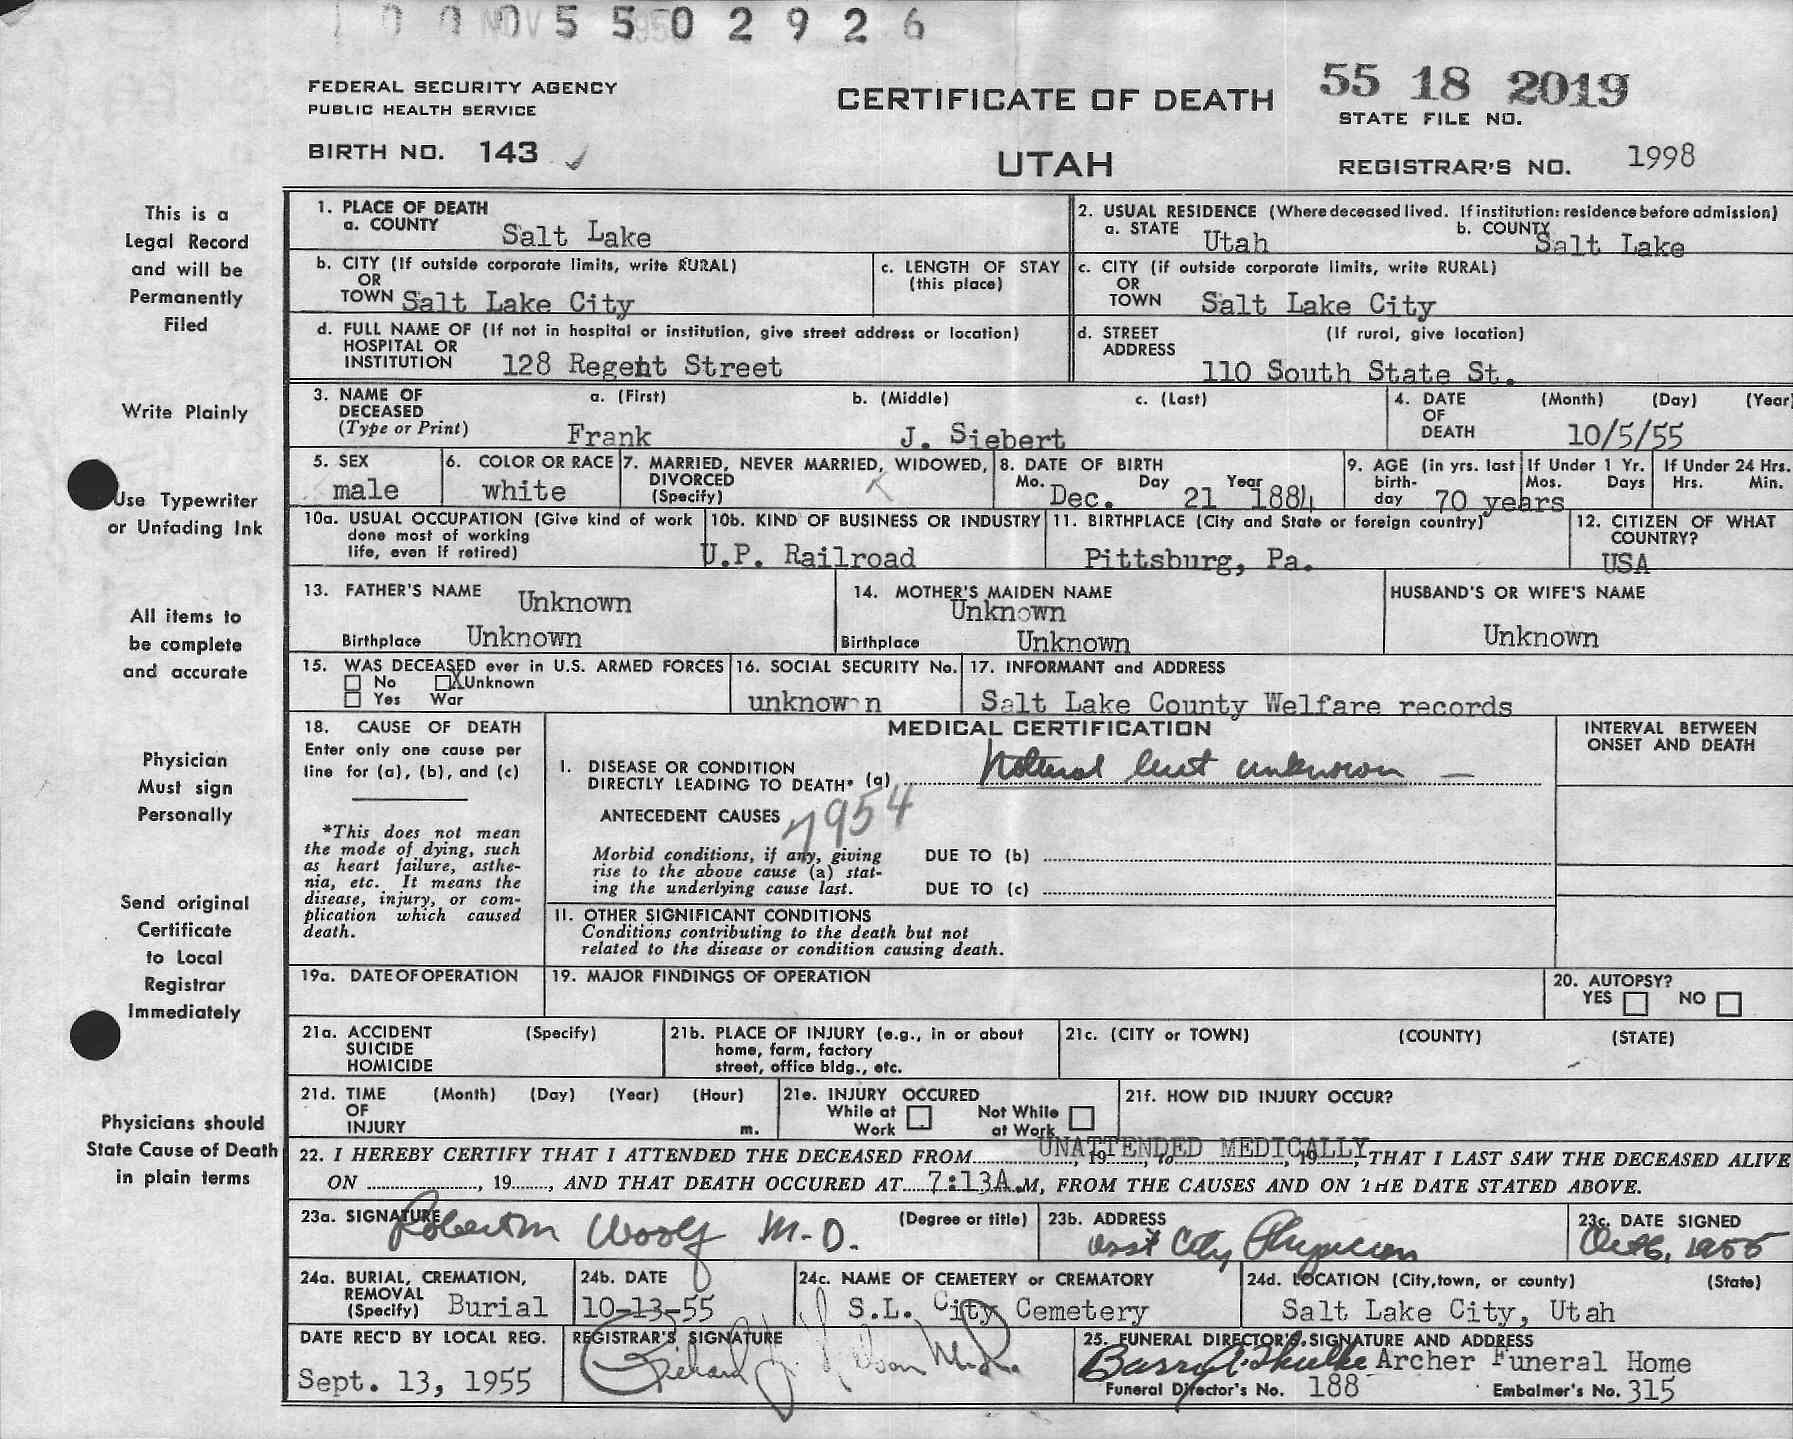 5 5 0 2 9 2 6
FEDERAL SECURITY AGENCY
PUBLIC HEALTH SERVICE
CERTIFICATE OF DEATH
55 18 2019
STATE FILE NO.
BIRTH NO. 143
UTAH
REGISTRAR'S NO. 1998
This is a
Legal Record
and will be
Permanently
Filed
Write Plainly
Use Typewriter
or Unfading Ink
All items to
be complete
and accurate
Physician
Must sign
Personally
Send original
Certificate
to Local
Registrar
Immediately
Physicians should
State Cause of Death
in plain terms
1. PLACE OF DEATH
a. COUNTY Salt Lake
2. USUAL RESIDENCE (Where deceased lived. If institution: residence before admission)
a. STATE Utah b. COUNTY Salt Lake
b. CITY (If outside corporate limits, write RURAL)
OR
TOWN Salt Lake City
c. LENGTH OF STAY
(this place)
c. CITY (if outside corporate limits, write RURAL)
OR
TOWN Salt Lake City
d. FULL NAME OF (If not in hospital or institution, give street address or location)
HOSPITAL OR
INSTITUTION 128 Regent Street
d. STREET (If rural, give location)
ADDRESS
110 South State St.
3. NAME OF a. (First) b. (Middle) c. (Last)
DECEASED
(Type or Print) Frank J. Siebert
4. DATE (Month) (Day) (Year)
OF
DEATH 10/5/55
5. SEX
male
6. COLOR OR RACE
white
7. MARRIED, NEVER MARRIED, WIDOWED,
DIVORCED
(Specify)
8. DATE OF BIRTH
Mo. Day Year
Dec. 21 1884
9. AGE (in yrs. last
birth-
day 70 years
If Under 1 Yr.
Mos. Days
If Under 24 Hrs.
Hrs. Min.
10a. USUAL OCCUPATION (Give kind of work
done most of working
life, even if retired)
10b. KIND OF BUSINESS OR INDUSTRY
U.P. Railroad
11. BIRTHPLACE (City and State or foreign country)
Pittsburg, Pa.
12. CITIZEN OF WHAT
COUNTRY?
USA
13. FATHER'S NAME Unknown
Birthplace Unknown
14. MOTHER'S MAIDEN NAME
Unknown
Birthplace Unknown
HUSBAND'S OR WIFE'S NAME
Unknown
15. WAS DECEASED ever in U.S. ARMED FORCES
No X Unknown
Yes War
16. SOCIAL SECURITY No.
unknown
17. INFORMANT and ADDRESS
Salt Lake County Welfare records
18. CAUSE OF DEATH
Enter only one cause per
line for (a), (b), and (c)
*This does not mean
the mode of dying, such
as heart failure, asthe-
nia, etc. It means the
disease, injury, or com-
plication which caused
death.
MEDICAL CERTIFICATION
INTERVAL BETWEEN
ONSET AND DEATH
I. DISEASE OR CONDITION
DIRECTLY LEADING TO DEATH* (a) Natural but unknown —
ANTECEDENT CAUSES 7954
Morbid conditions, if any, giving
rise to the above cause (a) stat-
ing the underlying cause last.
DUE TO (b)
DUE TO (c)
II. OTHER SIGNIFICANT CONDITIONS
Conditions contributing to the death but not
related to the disease or condition causing death.
19a. DATE OF OPERATION
19. MAJOR FINDINGS OF OPERATION
20. AUTOPSY?
YES NO
21a. ACCIDENT (Specify)
SUICIDE
HOMICIDE
21b. PLACE OF INJURY (e.g., in or about
home, farm, factory
street, office bldg., etc.
21c. (CITY or TOWN) (COUNTY) (STATE)
21d. TIME (Month) (Day) (Year) (Hour)
OF
INJURY m.
21e. INJURY OCCURED
While at Not While
Work at Work
21f. HOW DID INJURY OCCUR?
UNATTENDED MEDICALLY
22. I HEREBY CERTIFY THAT I ATTENDED THE DECEASED FROM , 19 , to , 19 , THAT I LAST SAW THE DECEASED ALIVE
ON , 19 , AND THAT DEATH OCCURED AT 7:13A.M, FROM THE CAUSES AND ON THE DATE STATED ABOVE.
23a. SIGNATURE (Degree or title)
Robert M Woolf M.D.
23b. ADDRESS
Asst City Physician
23c. DATE SIGNED
Oct 6, 1955
24a. BURIAL, CREMATION,
REMOVAL
(Specify) Burial
24b. DATE
10-13-55
24c. NAME OF CEMETERY or CREMATORY
S.L. City Cemetery
24d. LOCATION (City, town, or county) (State)
Salt Lake City, Utah
DATE REC'D BY LOCAL REG.
Sept. 13, 1955
REGISTRAR'S SIGNATURE
Richard
25. FUNERAL DIRECTOR'S SIGNATURE AND ADDRESS
Archer Funeral Home
Funeral Director's No. 188 Embalmer's No. 315